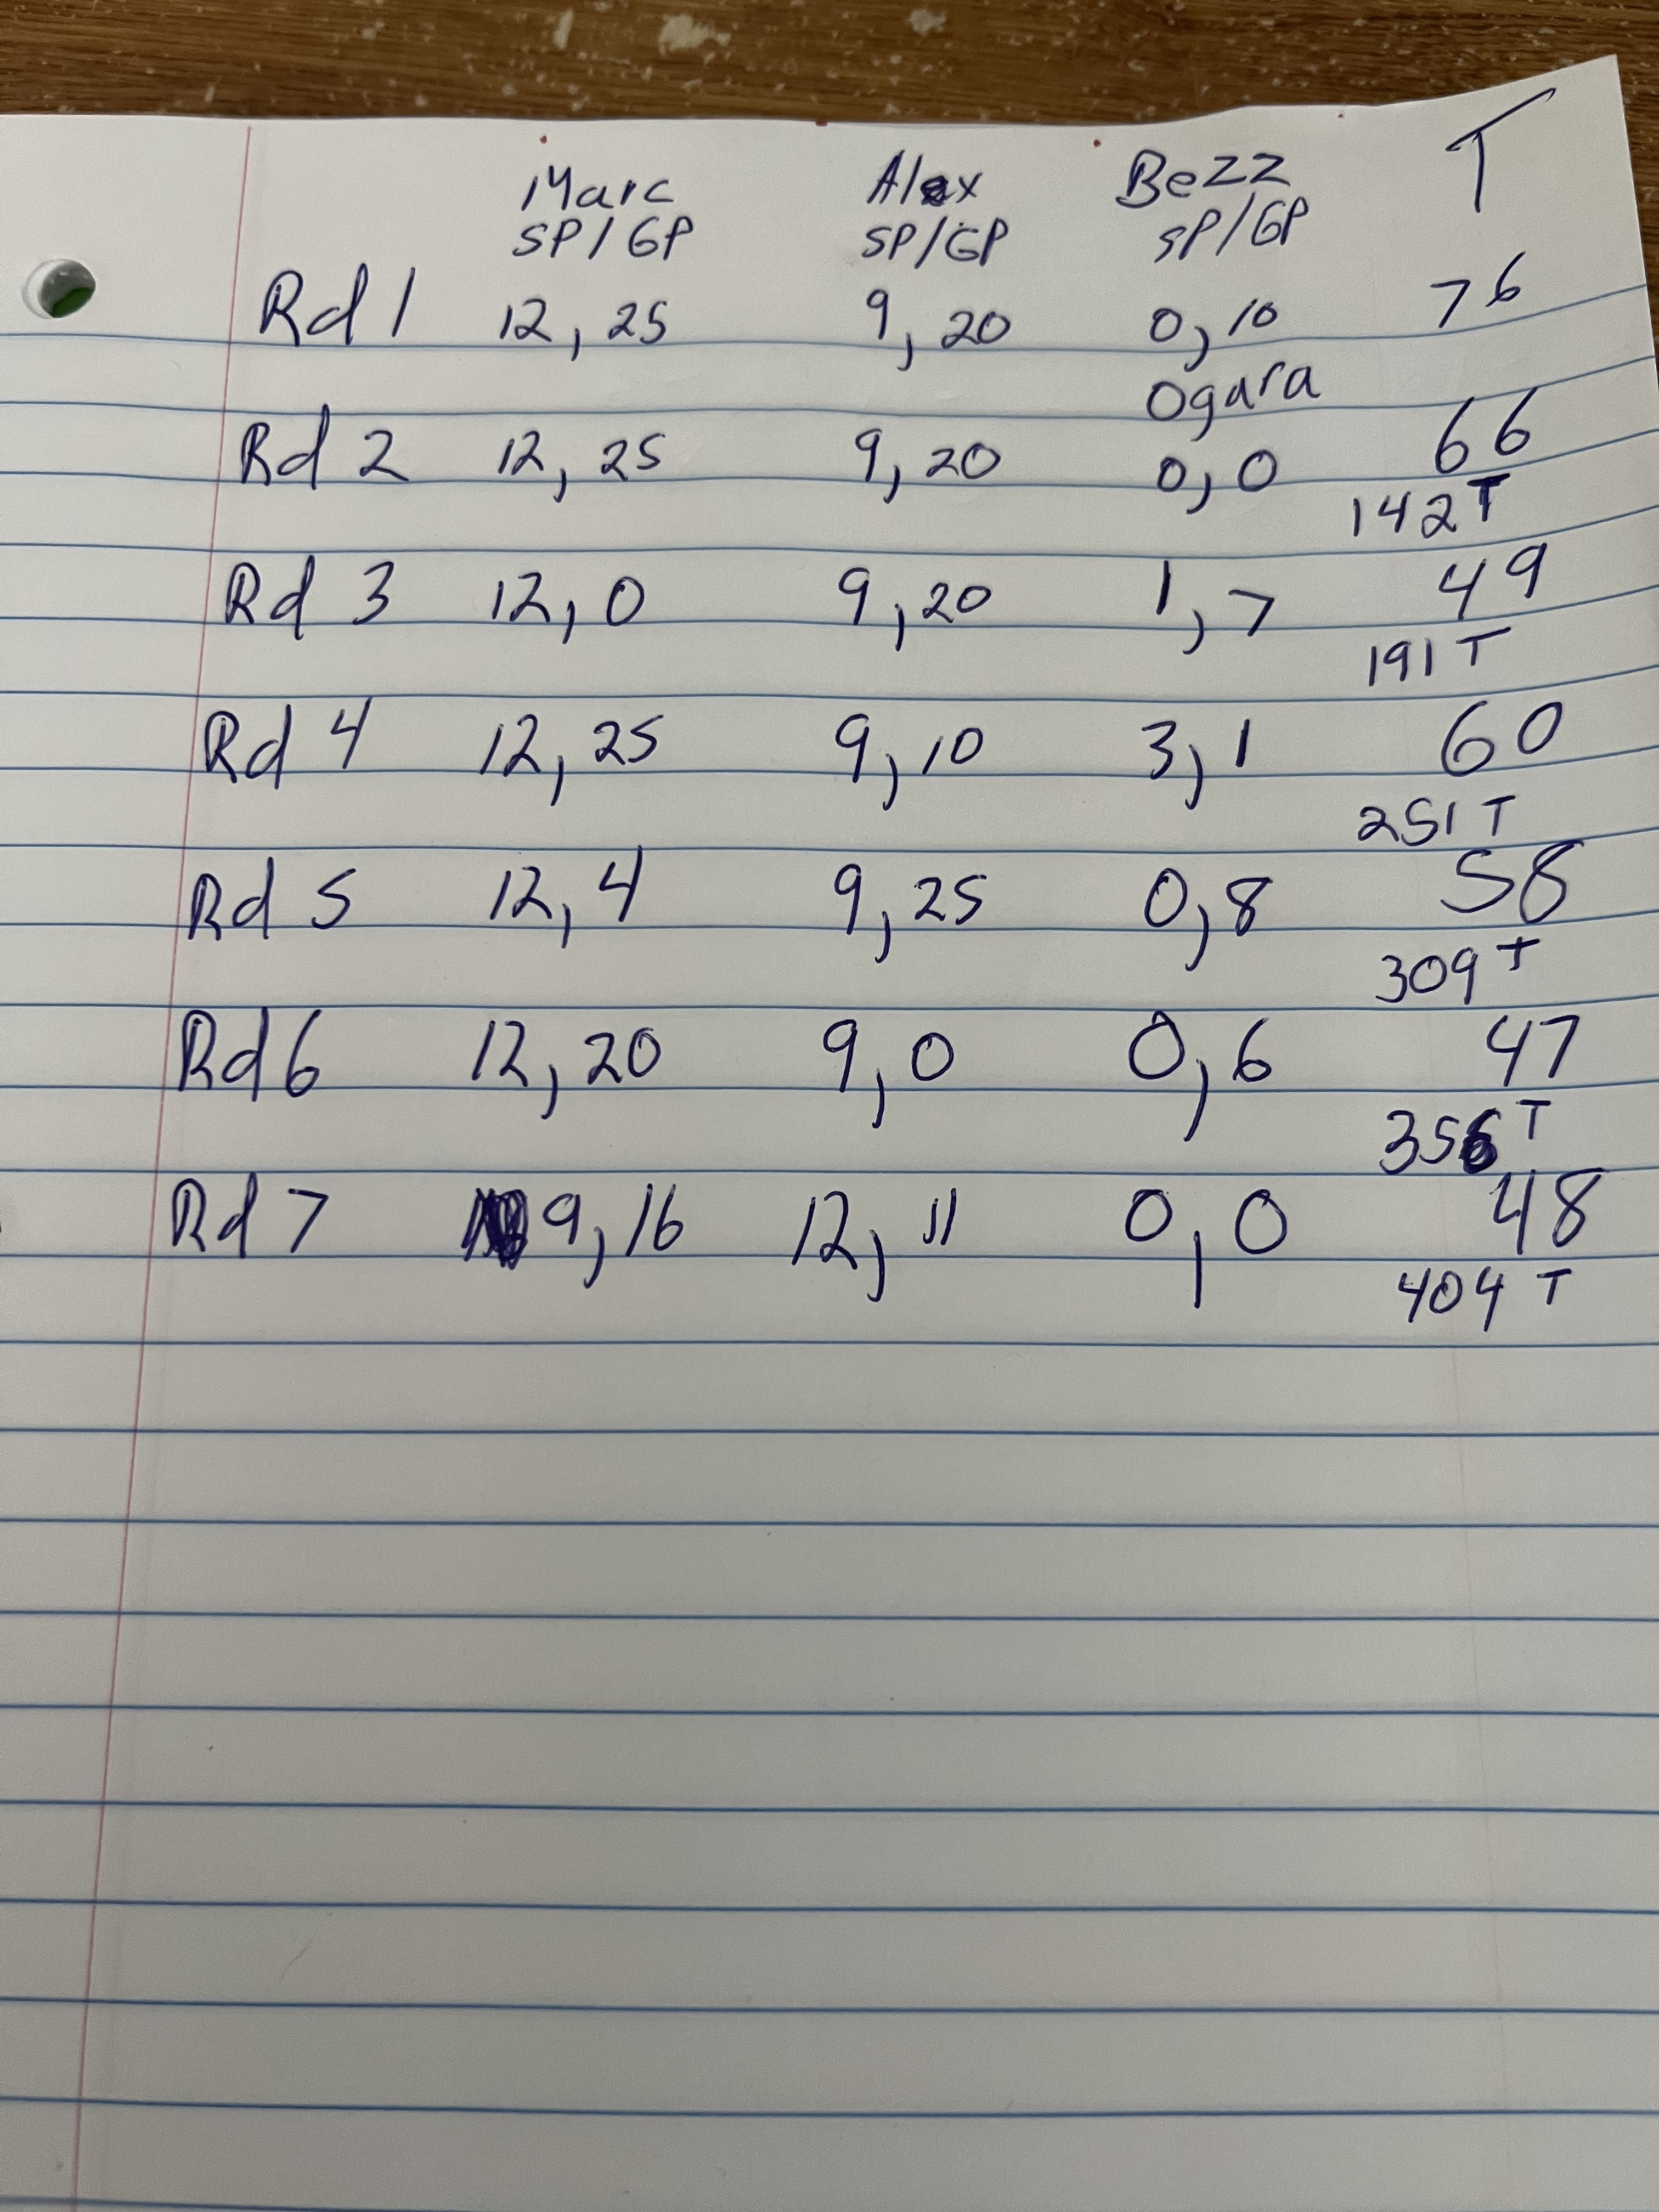 Marc Alex Bezz T
SP/GP SP/GP SP/GP
Rd 1 12, 25 9, 20 0, 10 76
Ogura
Rd 2 12, 25 9, 20 0, 0 66
142 T
Rd 3 12, 0 9, 20 1, 7 49
191 T
Rd 4 12, 25 9, 10 3, 1 60
251 T
Rd 5 12, 4 9, 25 0, 8 58
309 T
Rd 6 12, 20 9, 0 0, 6 47
356 T
Rd 7 9, 16 12, 11 0, 0 48
404 T